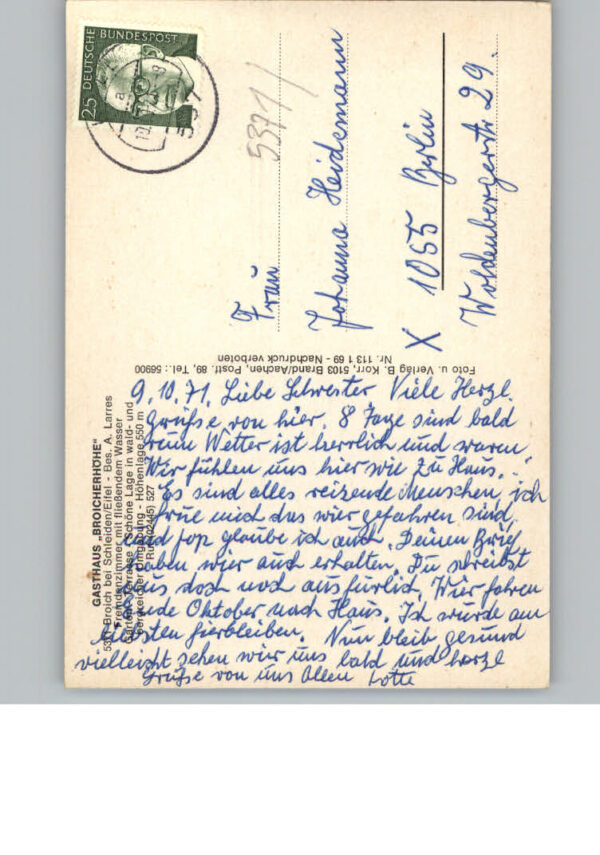 DEUTSCHE BUNDESPOST
25
5371
Frau
Johanna Heidemann
X 1055 Berlin
Woldenbergerstr 29.
Foto u. Verlag B. Korr, 5103 Brand/Aachen, Postf. 89, Tel.: 56900
Nr. 113 1 69 - Nachdruck verboten
GASTHAUS „BROICHERHÖHE"
Broich bei Schleiden/Eifel - Bes. A. Larres
Fremdenzimmer mit fließendem Wasser
Terrasse - Schöne Lage in wald- und
Umgebung - Höhenlage 550 m
Ruf (02445) 527
9.10.71. Liebe Schwester Viele Herzl.
Grüße von hier. 8 Tage sind bald
rum Wetter ist herrlich und warem
Wir fühlen uns hier wie zu Haus.
Es sind alles reizende Menschen, ich
frue mich das wier gefahren sind,
und glaube ich auch. Deinen Brief
haben wier auch erhalten. Du schreibst
uns doch noch ausfürlich. Wier fahren
Ende Oktober nach Haus. Ich würde am
liebsten hierbleiben. Nun bleib gesund
vielleicht sehen wir uns bald und herzl
Grüße von uns Allen Lotte